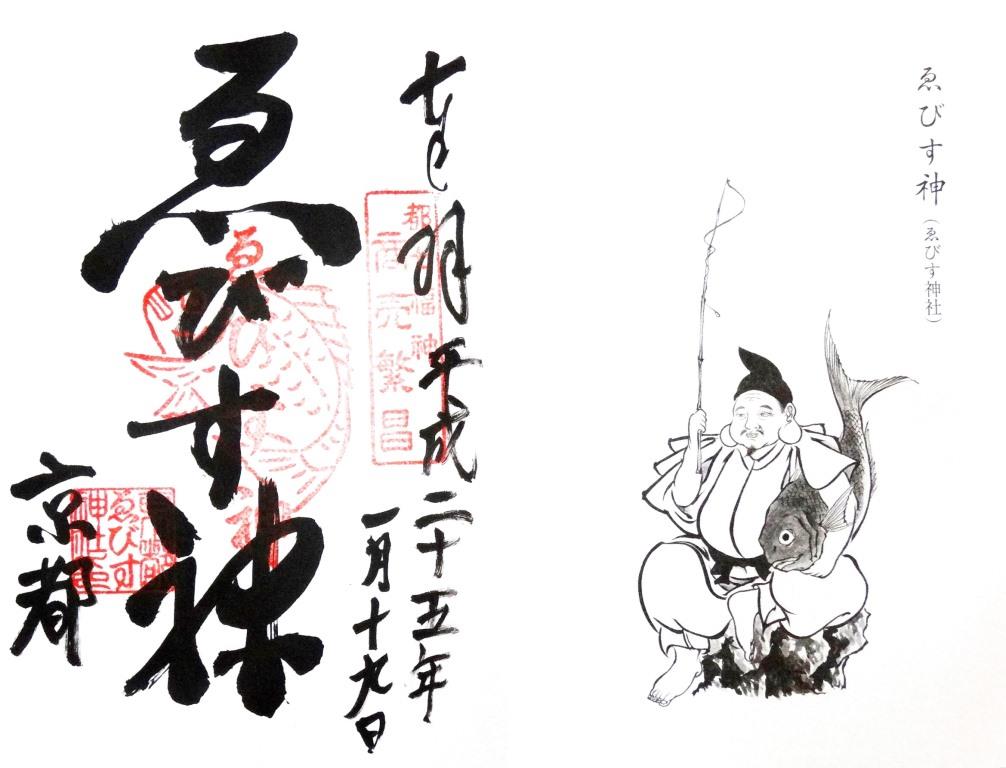 ゑびす神
(ゑびす神社)
奉拝
平成二十五年
一月十九日
都七福神
商売繁昌
ゑびす神
ゑびす神
京都
ゑびす
神社